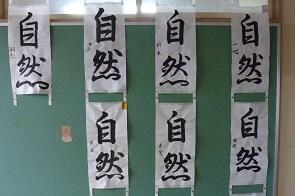 自然
自然
自然
自然
自然
自然
自然